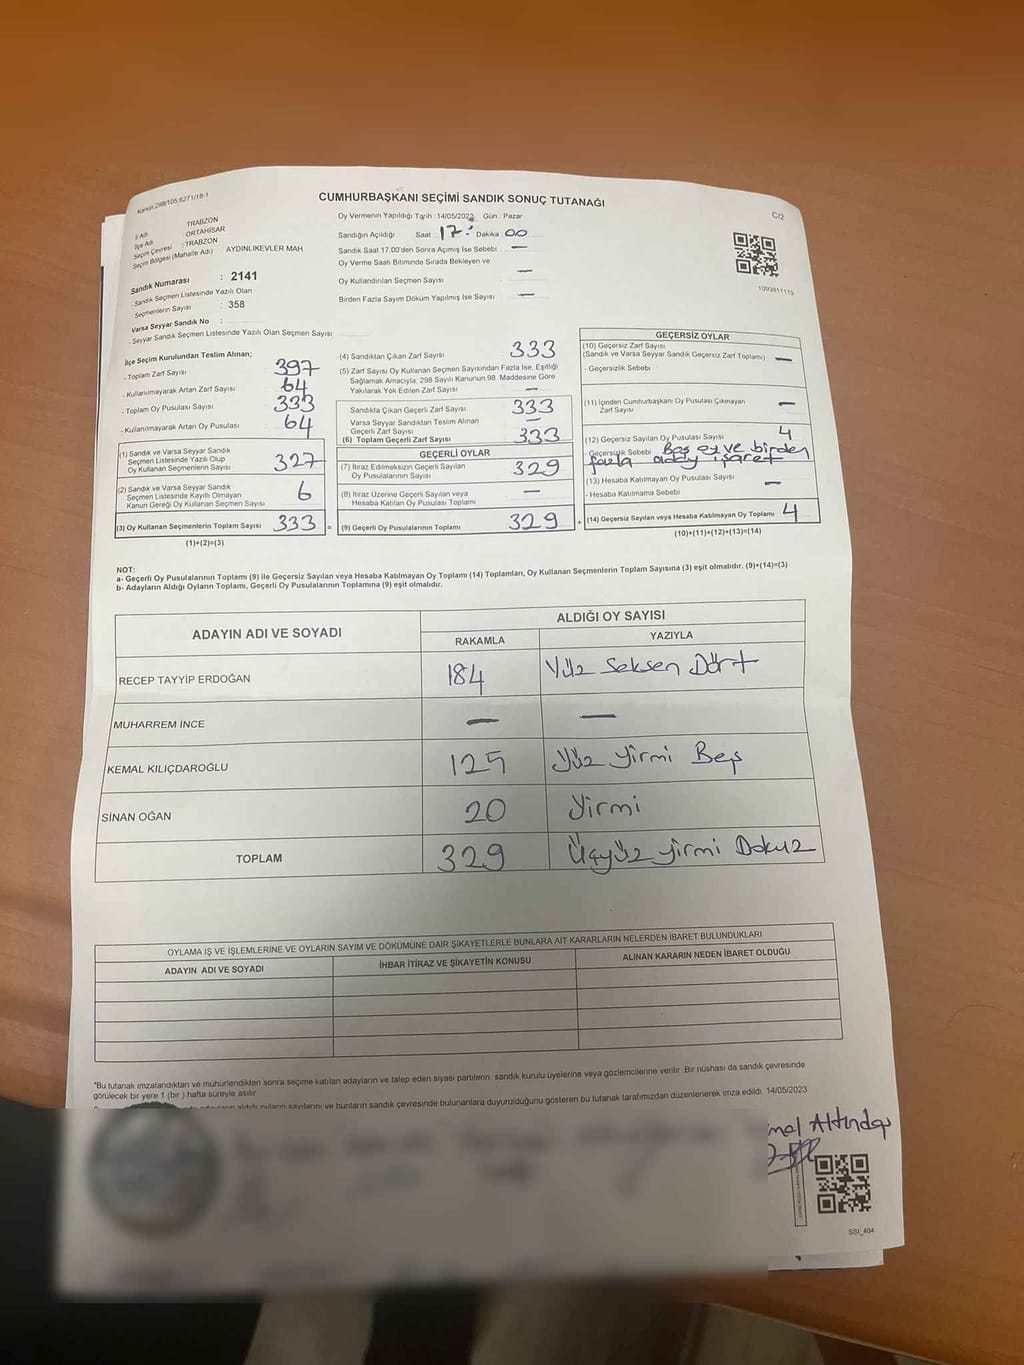 Kanun:298/105,6271/18-1
CUMHURBAŞKANI SEÇİMİ SANDIK SONUÇ TUTANAĞI
C/2
İl Adı TRABZON
İlçe Adı ORTAHİSAR
Seçim Çevresi : TRABZON
Seçim Bölgesi (Mahalle Adı) AYDINLIKEVLER MAH
Sandık Numarası : 2141
- Sandık Seçmen Listesinde Yazılı Olan
Seçmenlerin Sayısı : 358
Varsa Seyyar Sandık No :
- Seyyar Sandık Seçmen Listesinde Yazılı Olan Seçmen Sayısı:
Oy Vermenin Yapıldığı Tarih :14/05/2023 Gün : Pazar
Sandığın Açıldığı Saat 17: Dakika 00
Sandık Saat 17:00'den Sonra Açımış İse Sebebi —
Oy Verme Saati Bitiminde Sırada Bekleyen ve
Oy Kullandırılan Seçmen Sayısı —
Birden Fazla Sayım Döküm Yapılmış İse Sayısı —
1093811119
İlçe Seçim Kurulundan Teslim Alınan;
- Toplam Zarf Sayısı 397
- Kullanılmayarak Artan Zarf Sayısı 64
- Toplam Oy Pusulası Sayısı 333
- Kullanılmayarak Artan Oy Pusulası 64
(1) Sandık ve Varsa Seyyar Sandık
Seçmen Listesinde Yazılı Olup
Oy Kullanan Seçmenlerin Sayısı 327
(2) Sandık ve Varsa Seyyar Sandık
Seçmen Listesinde Kayıtlı Olmayan
Kanun Gereği Oy Kullanan Seçmen Sayısı 6
(3) Oy Kullanan Seçmenlerin Toplam Sayısı 333 =
(1)+(2)=(3)
(4) Sandıktan Çıkan Zarf Sayısı 333
(5) Zarf Sayısı Oy Kullanan Seçmen Sayısından Fazla İse, Eşitliği
Sağlamak Amacıyla, 298 Sayılı Kanunun 98. Maddesine Göre
Yakılarak Yok Edilen Zarf Sayısı —
Sandıkta Çıkan Geçerli Zarf Sayısı 333
Varsa Seyyar Sandıktan Teslim Alınan
Geçerli Zarf Sayısı —
(6) Toplam Geçerli Zarf Sayısı 333
GEÇERLİ OYLAR
(7) İtiraz Edilmeksizin Geçerli Sayılan
Oy Pusulalarının Sayısı 329
(8) İtiraz Üzerine Geçerli Sayılan veya
Hesaba Katılan Oy Pusulası Toplamı —
(9) Geçerli Oy Pusulalarının Toplamı 329 +
GEÇERSİZ OYLAR
(10) Geçersiz Zarf Sayısı
(Sandık ve Varsa Seyyar Sandık Geçersiz Zarf Toplamı) —
- Geçersizlik Sebebi
(11) İçinden Cumhurbaşkanı Oy Pusulası Çıkmayan
Zarf Sayısı —
(12) Geçersiz Sayılan Oy Pusulası Sayısı 4
- Geçersizlik Sebebi Boş oy ve birden
fazla aday işaret
(13) Hesaba Katılmayan Oy Pusulası Sayısı —
- Hesaba Katılmama Sebebi
(14) Geçersiz Sayılan veya Hesaba Katılmayan Oy Toplamı 4
(10)+(11)+(12)+(13)=(14)
NOT:
a- Geçerli Oy Pusulalarının Toplamı (9) ile Geçersiz Sayılan veya Hesaba Katılmayan Oy Toplamı (14) Toplamları, Oy Kullanan Seçmenlerin Toplam Sayısına (3) eşit olmalıdır. (9)+(14)=(3)
b- Adayların Aldığı Oyların Toplamı, Geçerli Oy Pusulalarının Toplamına (9) eşit olmalıdır.
ADAYIN ADI VE SOYADI
ALDIĞI OY SAYISI
RAKAMLA YAZIYLA
RECEP TAYYİP ERDOĞAN 184 Yüz Seksen Dört
MUHARREM İNCE — —
KEMAL KILIÇDAROĞLU 125 Yüz Yirmi Beş
SİNAN OĞAN 20 Yirmi
TOPLAM 329 Üçyüz Yirmi Dokuz
OYLAMA İŞ VE İŞLEMLERİNE VE OYLARIN SAYIM VE DÖKÜMÜNE DAİR ŞİKAYETLERLE BUNLARA AİT KARARLARIN NELERDEN İBARET BULUNDUKLARI
ADAYIN ADI VE SOYADI İHBAR İTİRAZ VE ŞİKAYETİN KONUSU ALINAN KARARIN NEDEN İBARET OLDUĞU
*Bu tutanak imzalandıktan ve mühürlendikten sonra seçime katılan adayların ve talep eden siyasi partilerin sandık kurulu üyelerine veya gözlemcilerine verilir. Bir nüshası da sandık çevresinde
görülecek bir yere 1 (bir ) hafta süreyle asılır
aldığı oyların sayılarını ve bunların sandık çevresinde bulunanlara duyurulduğunu gösteren bu tutanak tarafımızdan düzenlenerek imza edildi. 14/05/2023
SSI_404